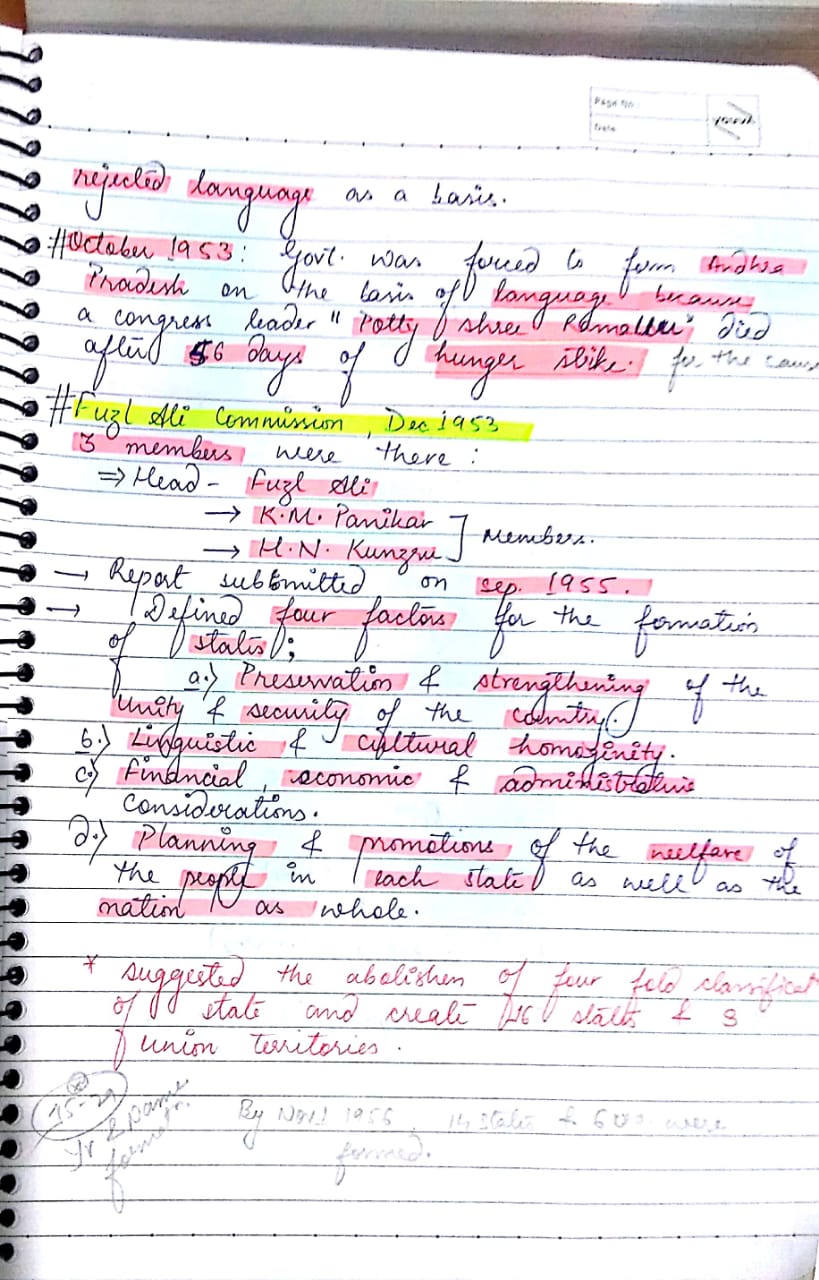 Page No.
Date
rejected language as a basis.
#October 1953: Govt. was forced to form Andhra
Pradesh on the basis of language because
a congress leader " Potty shree Ramallu" died
after 56 days of hunger strike. for the cause
#Fuzl Ali Commission, Dec 1953
3 members were there :
⇒ Head - Fuzl Ali
→ K.M. Panikar
→ H.N. Kunzru ] Members.
→ Report submitted on sep. 1955.
→ Defined four factors for the formation
of states;
a.) Preservation & strengthening of the
unity & security of the country.
b.) Linguistic & cultural homoginity.
c.) financial, economic & administrative
considerations.
d.) Planning & promotions of the welfare of
the people in each state as well as the
nation as whole.
* suggested the abolishen of four fold classificat
of state and create 16 states & 3
union territories.
15-29
Yr & Name
format.
By Nov 1 1956, 14 states & 6 UTs were
formed.